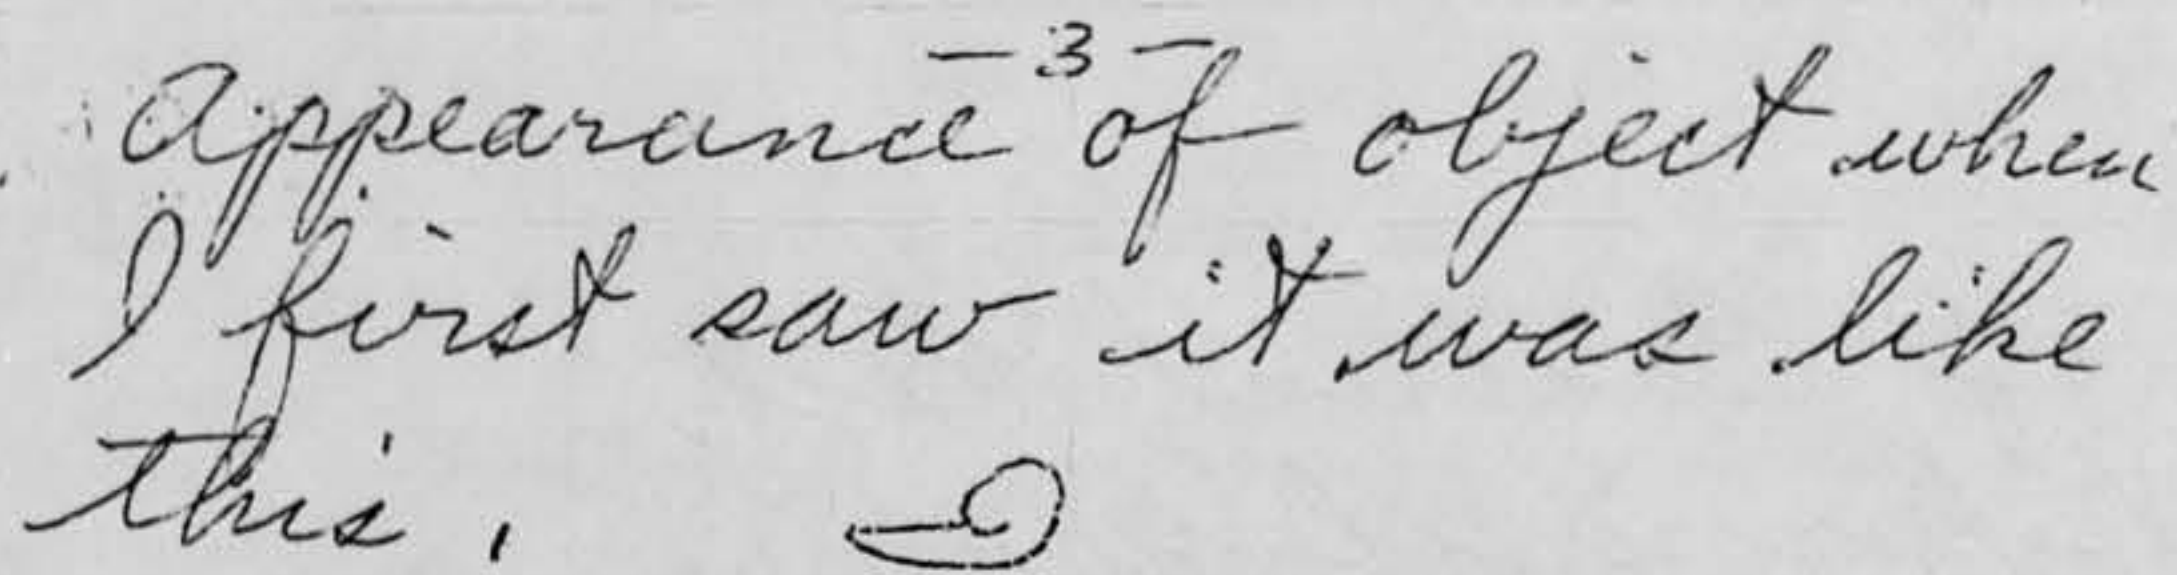 - 3 -
Appearance of object when
I first saw it was like
this.